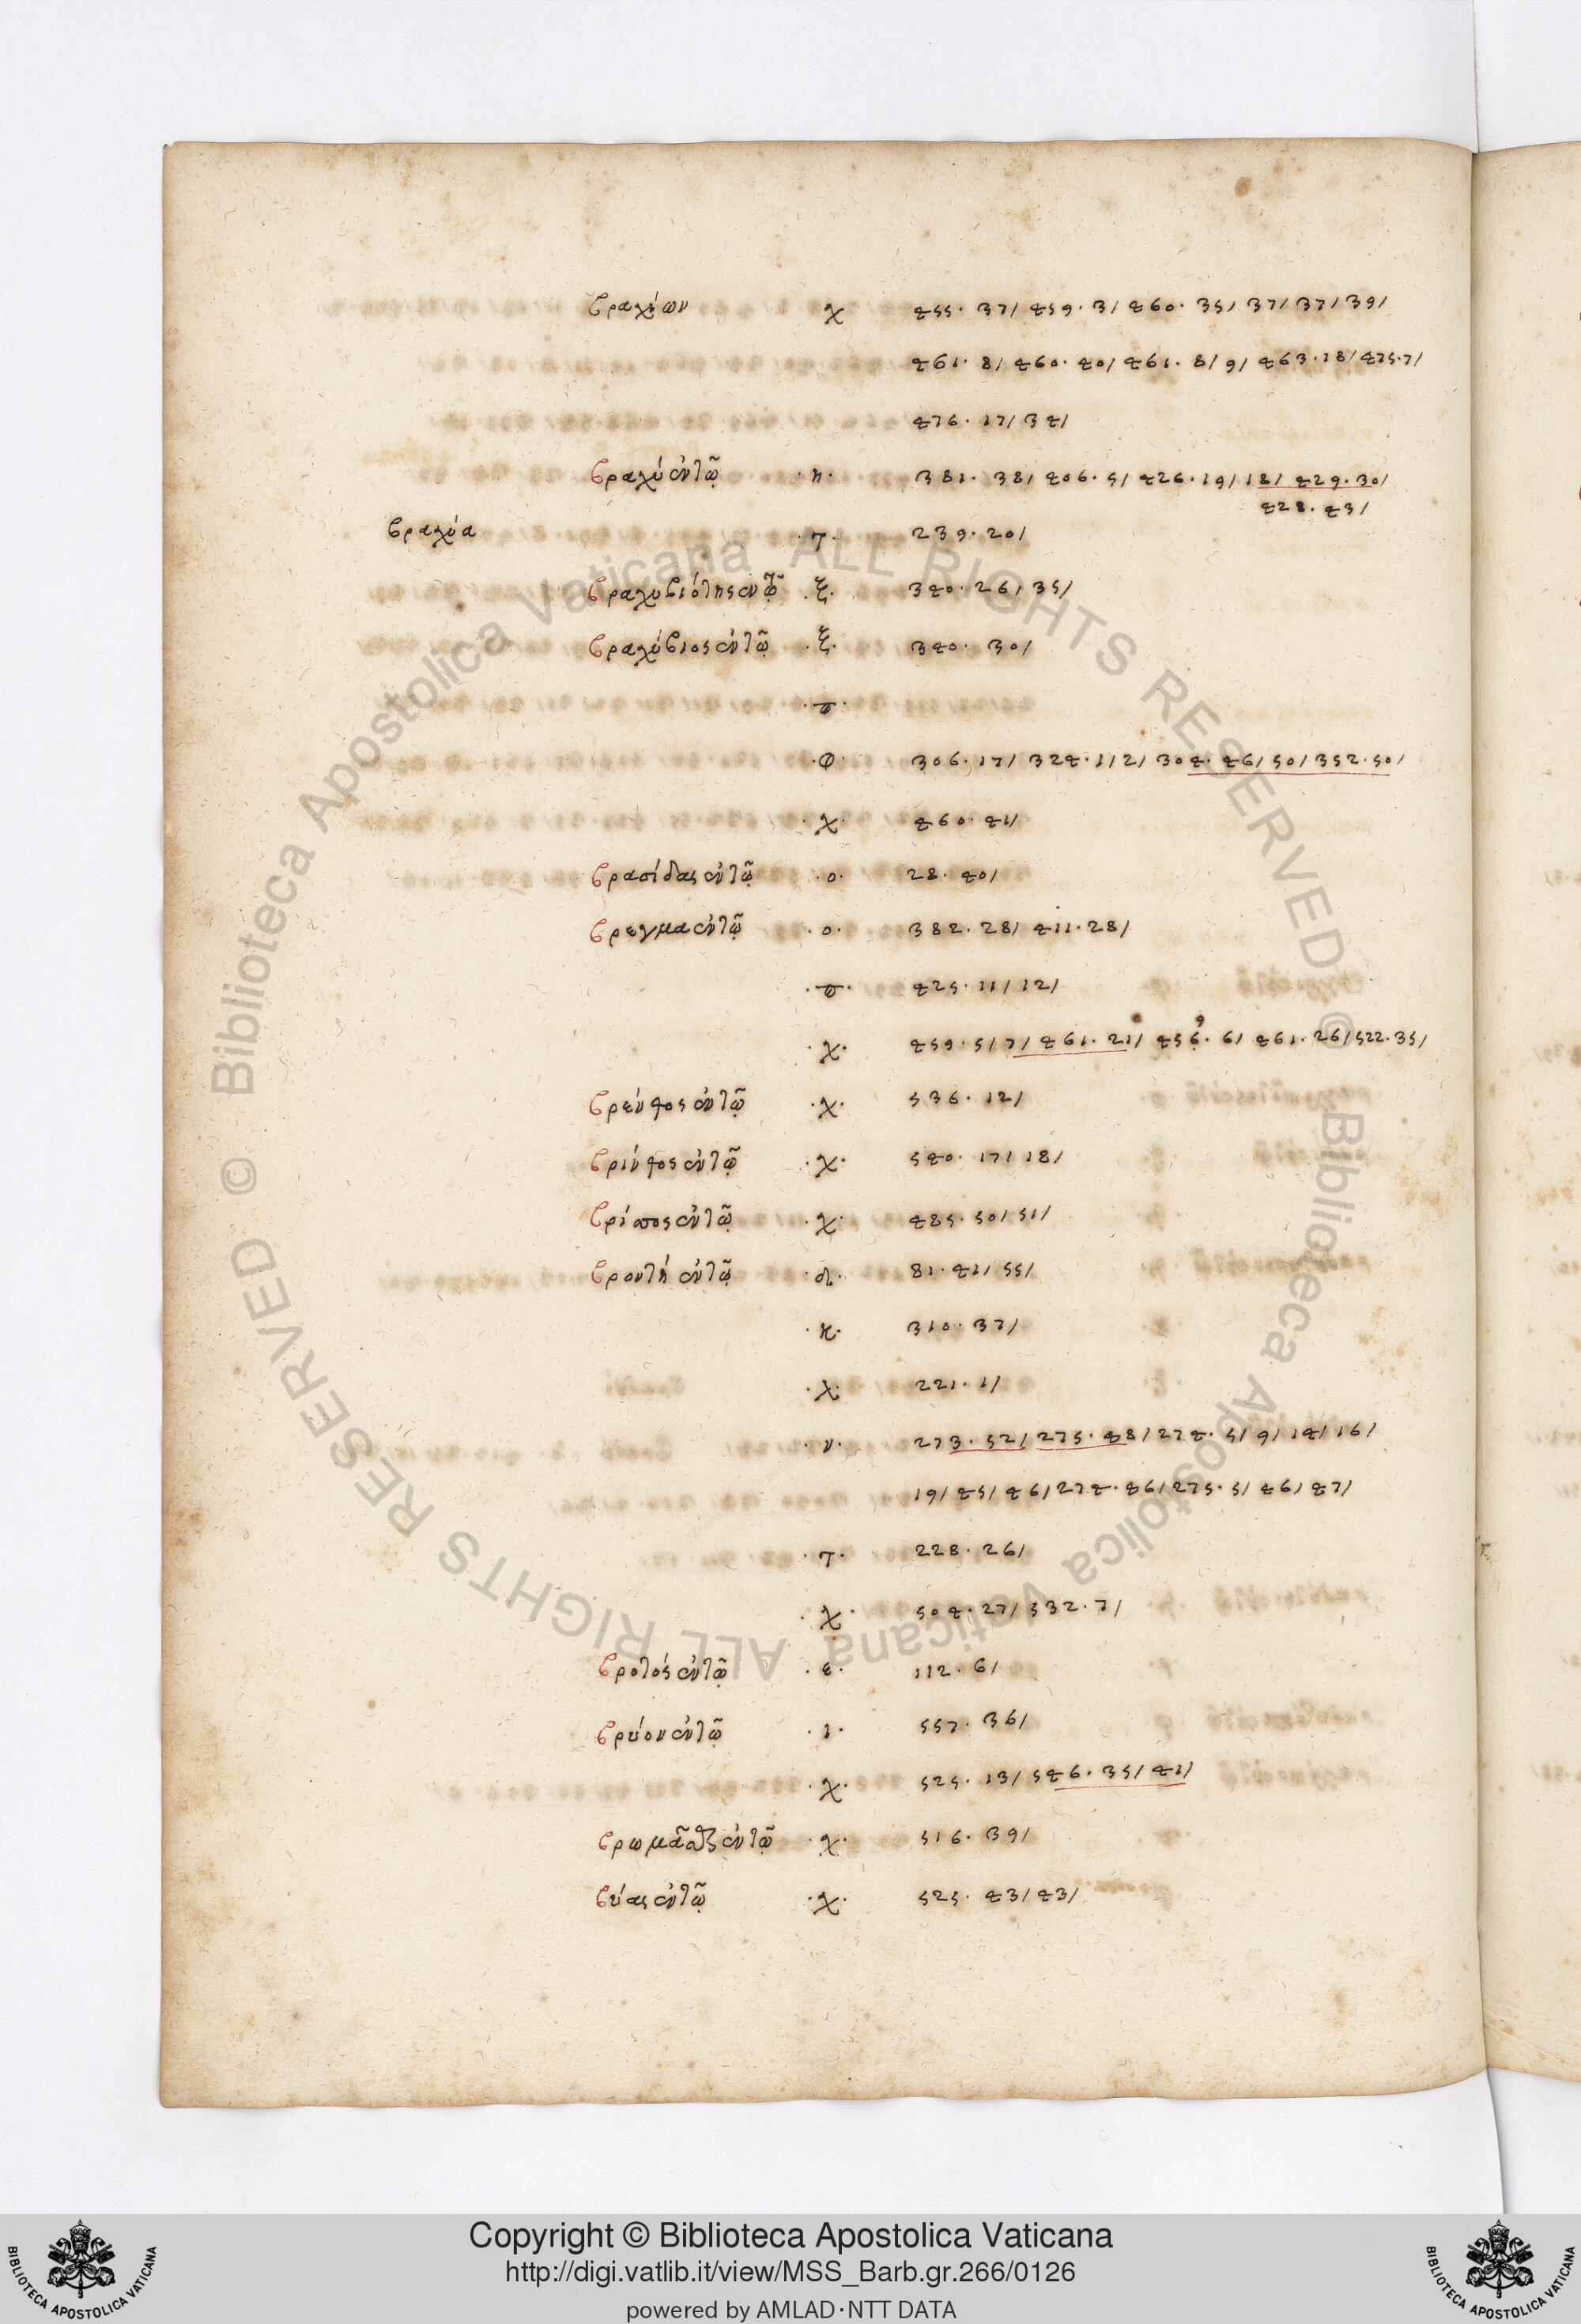 βραχίων χ 455. 37/ 459. 3/ 460. 35/ 37/ 37/ 39/
461. 8/ 460. 40/ 461. 8/ 9/ 463. 18/ 475. 7/
476. 17/ 34/
βραχύ ἐν τῷ ·η· 381. 38/ 406. 5/ 426. 19/ 18/ 429. 30/
428. 43/
βραχέα ·τ· 239. 20/
βραχυβιότης ἐν τῷ ·ξ· 340. 26/ 35/
βραχύβιος ἐν τῷ ·ξ· 340. 30/
·π·
·φ· 306. 17/ 324. 1/2/ 304. 46/ 50/ 352. 50/
·χ· 460. 41/
βρασίδας ἐν τῷ ·ο· 28. 40/
βρεγμα ἐν τῷ ·ο· 382. 28/ 411. 28/
·π· 425. 11/ 12/
·χ· 459. 5/ 7/ 461. 21/ 456. 6/ 461. 26/ 522. 35/
9
βρένθος ἐν τῷ ·χ· 536. 12/
βρίνθος ἐν τῷ ·χ· 540. 17/ 18/
βρίπος ἐν τῷ ·χ· 485. 50/ 51/
βροντή ἐν τῷ ·δ· 81. 41/ 55/
·κ· 310. 37/
·λ· 221. 1/
·ν· 273. 52/ 275. 48/ 274. 5/ 9/ 14/ 16/
19/ 45/ 46/ 274. 46/ 275. 5/ 46/ 47/
·τ· 228. 26/
·χ· 504. 27/ 532. 7/
βροτός ἐν τῷ ·ε· 112. 6/
βρύον ἐν τῷ ·ι· 557. 36/
·χ· 525. 13/ 546. 35/ 41/
ἐν τῷ ·χ· 516. 39/
βύας ἐν τῷ ·χ· 525. 43/ 43/
Copyright © Biblioteca Apostolica Vaticana
http://digi.vatlib.it/view/MSS_Barb.gr.266/0126
powered by AMLAD·NTT DATA
BIBLIOTECA APOSTOLICA VATICANA
BIBLIOTECA APOSTOLICA VATICANA
© Biblioteca Apostolica Vaticana ALL RIGHTS RESERVED
© Biblioteca Apostolica Vaticana ALL RIGHTS RESERVED